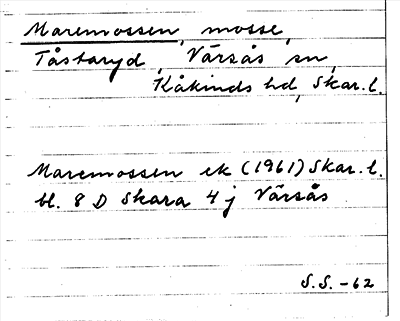 Maremossen, mosse,
Tåstaryd, Värsås sn,
Kåkinds hd, Skar. l.
Maremossen ek (1961) Skar. l.
bl. 8 D Skara 4 j Värsås
S.S. -62